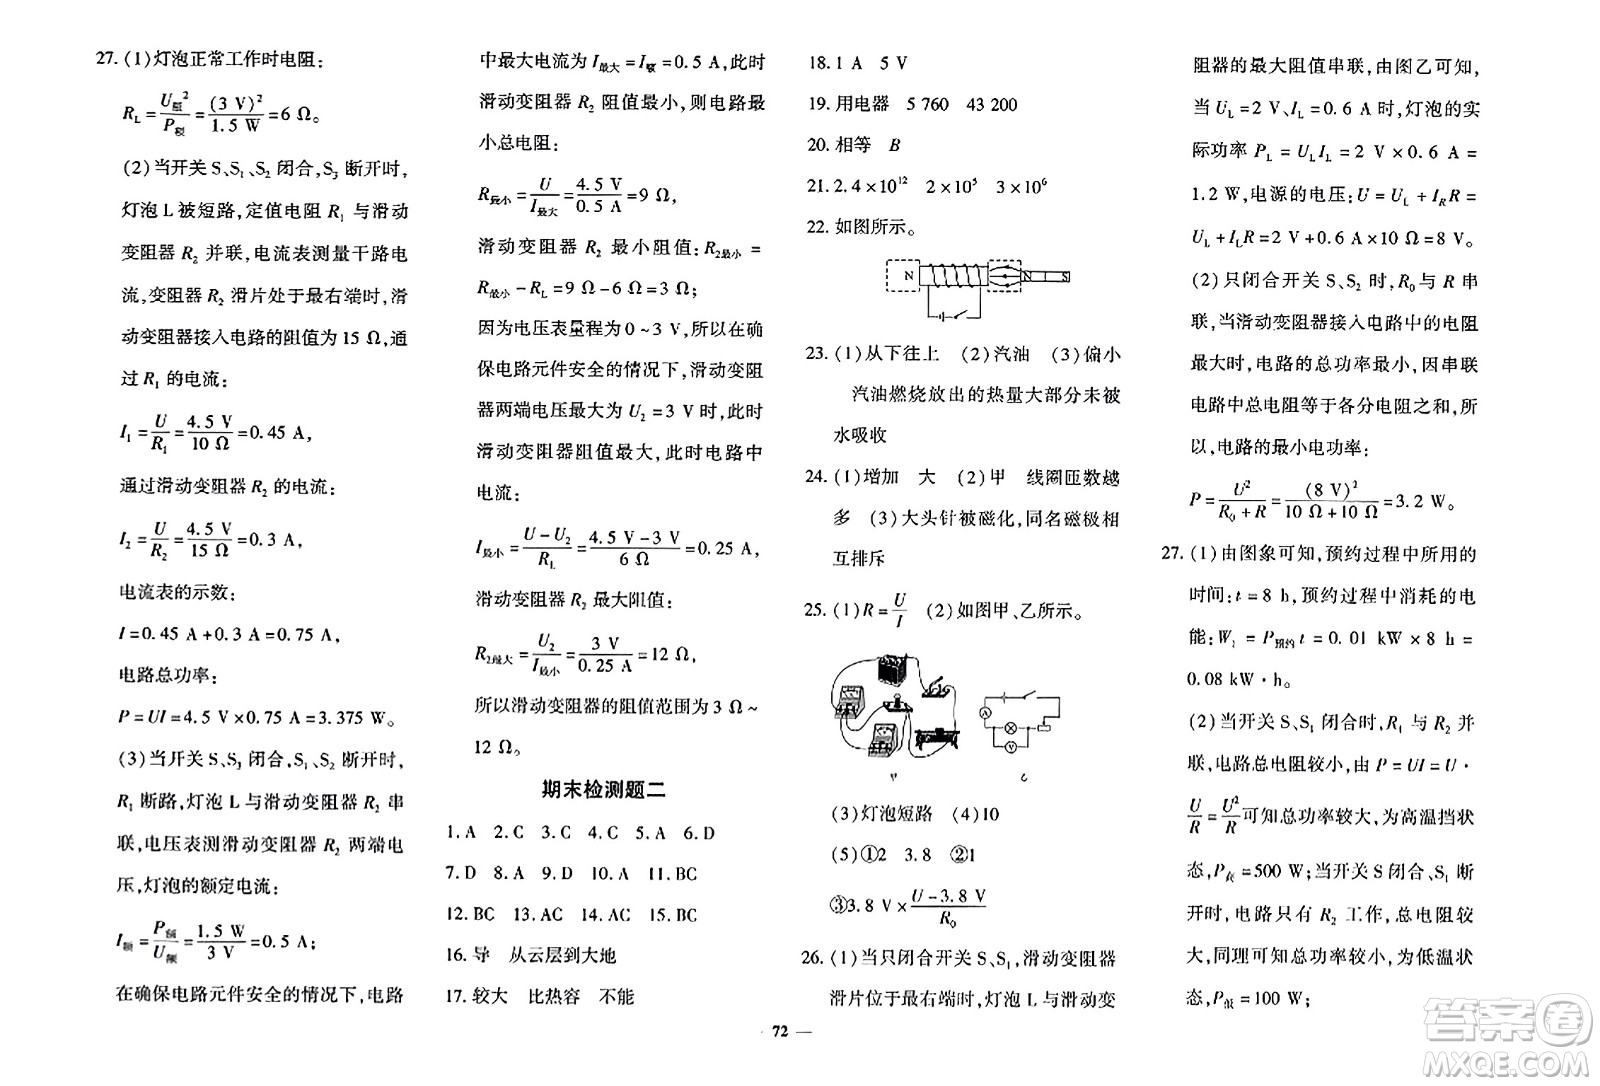 27. (1)灯泡正常工作时电阻:
R_L = U_额²/P_额 = (3 V)²/1.5 W = 6 Ω。
(2)当开关 S、S₁、S₂ 闭合,S₃ 断开时,
灯泡 L 被短路,定值电阻 R₁ 与滑动
变阻器 R₂ 并联,电流表测量干路电
流,变阻器 R₂ 滑片处于最右端时,滑
动变阻器接入电路的阻值为 15 Ω,通
过 R₁ 的电流:
I₁ = U/R₁ = 4.5 V/10 Ω = 0.45 A,
通过滑动变阻器 R₂ 的电流:
I₂ = U/R₂ = 4.5 V/15 Ω = 0.3 A,
电流表的示数:
I = 0.45 A + 0.3 A = 0.75 A,
电路总功率:
P = UI = 4.5 V × 0.75 A = 3.375 W。
(3)当开关 S、S₃ 闭合,S₁、S₂ 断开时,
R₁ 断路,灯泡 L 与滑动变阻器 R₂ 串
联,电压表测滑动变阻器 R₂ 两端电
压,灯泡的额定电流:
I_额 = P_额/U_额 = 1.5 W/3 V = 0.5 A;
在确保电路元件安全的情况下,电路
中最大电流为 I_最大 = I_额 = 0.5 A,此时
滑动变阻器 R₂ 阻值最小,则电路最
小总电阻:
R_最小 = U/I_最大 = 4.5 V/0.5 A = 9 Ω,
滑动变阻器 R₂ 最小阻值:R_2最小 =
R_最小 - R_L = 9 Ω - 6 Ω = 3 Ω;
因为电压表量程为 0 ~ 3 V,所以在确
保电路元件安全的情况下,滑动变阻
器两端电压最大为 U₂ = 3 V 时,此时
滑动变阻器阻值最大,此时电路中
电流:
I_最小 = (U - U₂)/R_L = (4.5 V - 3 V)/6 Ω = 0.25 A,
滑动变阻器 R₂ 最大阻值:
R_2最大 = U₂/I_最小 = 3 V/0.25 A = 12 Ω,
所以滑动变阻器的阻值范围为 3 Ω ~
12 Ω。
期末检测题二
1. A 2. C 3. C 4. C 5. A 6. D
7. D 8. A 9. D 10. A 11. BC
12. BC 13. AC 14. AC 15. BC
16. 导 从云层到大地
17. 较大 比热容 不能
18. 1 A 5 V
19. 用电器 5 760 43 200
20. 相等 B
21. 2.4 × 10¹² 2 × 10⁵ 3 × 10⁶
22. 如图所示。
N N S
23. (1)从下往上 (2)汽油 (3)偏小
汽油燃烧放出的热量大部分未被
水吸收
24. (1)增加 大 (2)甲 线圈匝数越
多 (3)大头针被磁化,同名磁极相
互排斥
25. (1) R = U/I (2)如图甲、乙所示。
A
V
(3)灯泡短路 (4)10
(5)①2 3.8 ②1
③3.8 V × (U - 3.8 V)/R₀
26. (1)当只闭合开关 S、S₁,滑动变阻器
滑片位于最右端时,灯泡 L 与滑动变
阻器的最大阻值串联,由图乙可知,
当 U_L = 2 V、I_L = 0.6 A 时,灯泡的实
际功率 P_L = U_L I_L = 2 V × 0.6 A =
1.2 W,电源的电压:U = U_L + I_R R =
U_L + I_L R = 2 V + 0.6 A × 10 Ω = 8 V。
(2)只闭合开关 S、S₂ 时,R₀ 与 R 串
联,当滑动变阻器接入电路中的电阻
最大时,电路的总功率最小,因串联
电路中总电阻等于各分电阻之和,所
以,电路的最小电功率:
P = U²/(R₀ + R) = (8 V)²/(10 Ω + 10 Ω) = 3.2 W。
27. (1)由图象可知,预约过程中所用的
时间:t = 8 h,预约过程中消耗的电
能:W₁ = P_预约 t = 0.01 kW × 8 h =
0.08 kW · h。
(2)当开关 S、S₁ 闭合时,R₁ 与 R₂ 并
联,电路总电阻较小,因 P = UI = U ·
U/R = U²/R 可知总功率较大,为高温挡状
态,P = 500 W;当开关 S 闭合、S₁ 断
开时,电路只有 R₂ 工作,总电阻较
大,同理可知总功率较小,为低温状
态,P_低 = 100 W;
72 —
答案圈
MXQE.COM